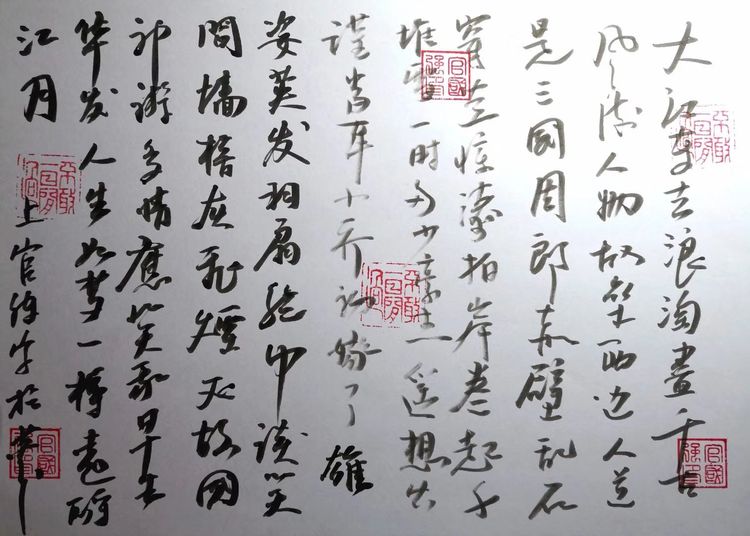 大江东去浪淘盡千古
风流人物故垒西边人道
是三國周郎赤壁乱石
穿空惊涛拍岸卷起千
堆雪一时多少豪杰遥想公
谨当年小乔初嫁了雄
姿英发羽扇纶巾谈笑
間墙橹灰飞煙灭故國
神游多情應笑我早生
华发人生如梦一樽还酹
江月 上官